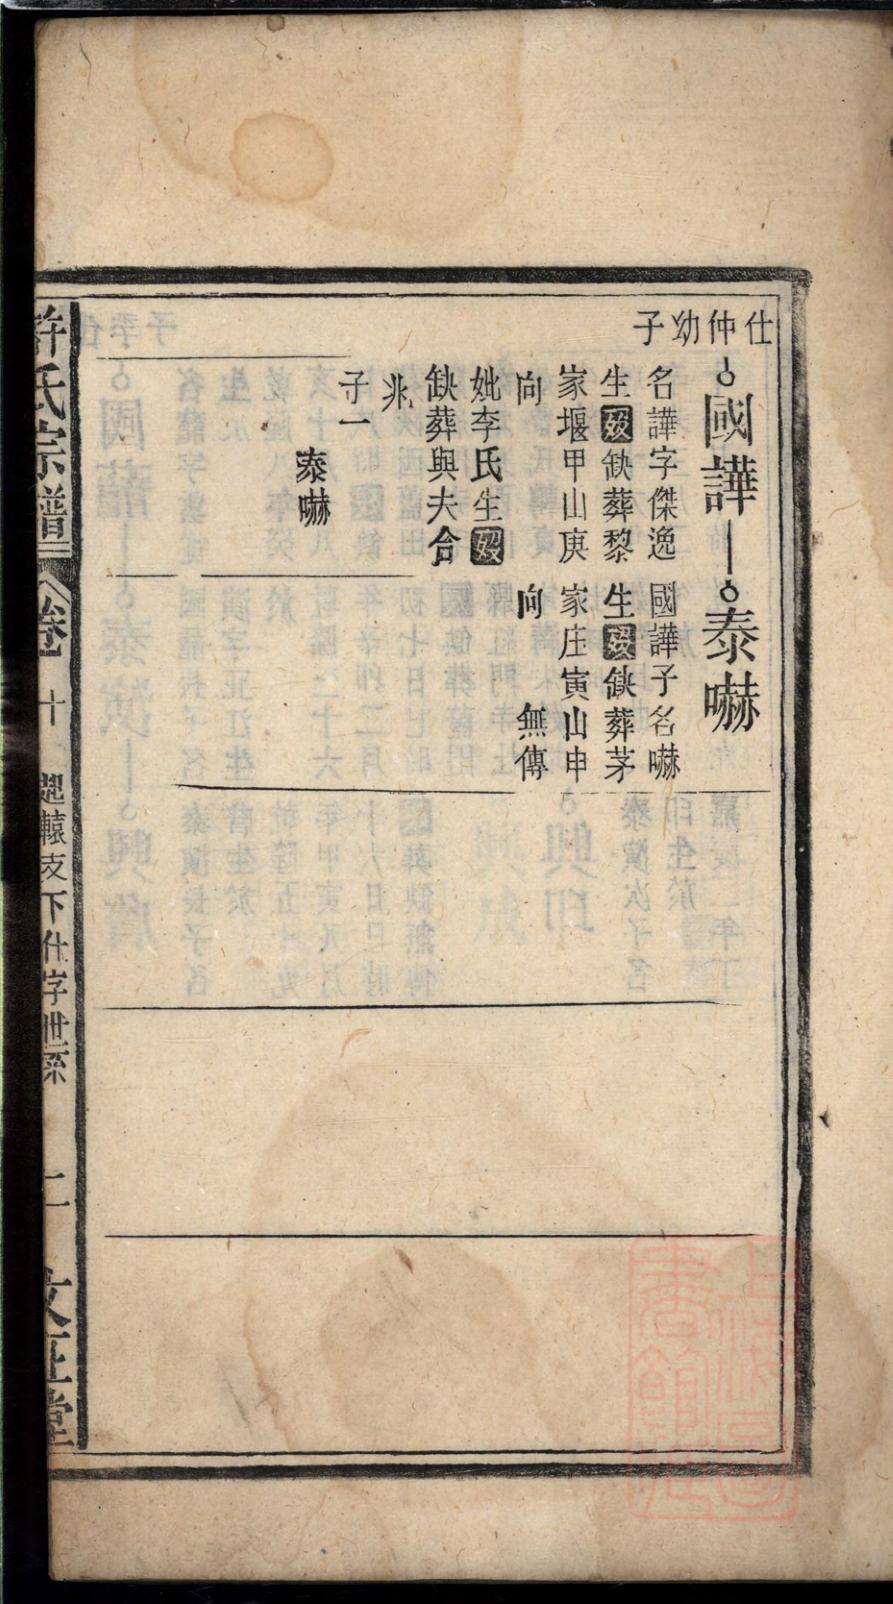 仕仲幼子
國譁
名譁字傑逸
生歿缺葬黎
家堰甲山庚
向
妣李氏生歿
缺葬與夫合
兆
子一
泰嚇
泰嚇
國譁子名嚇
生歿缺葬茅
家庄寅山申
向 無傳
許氏宗譜
卷十
支下仕字世系
二
文正堂